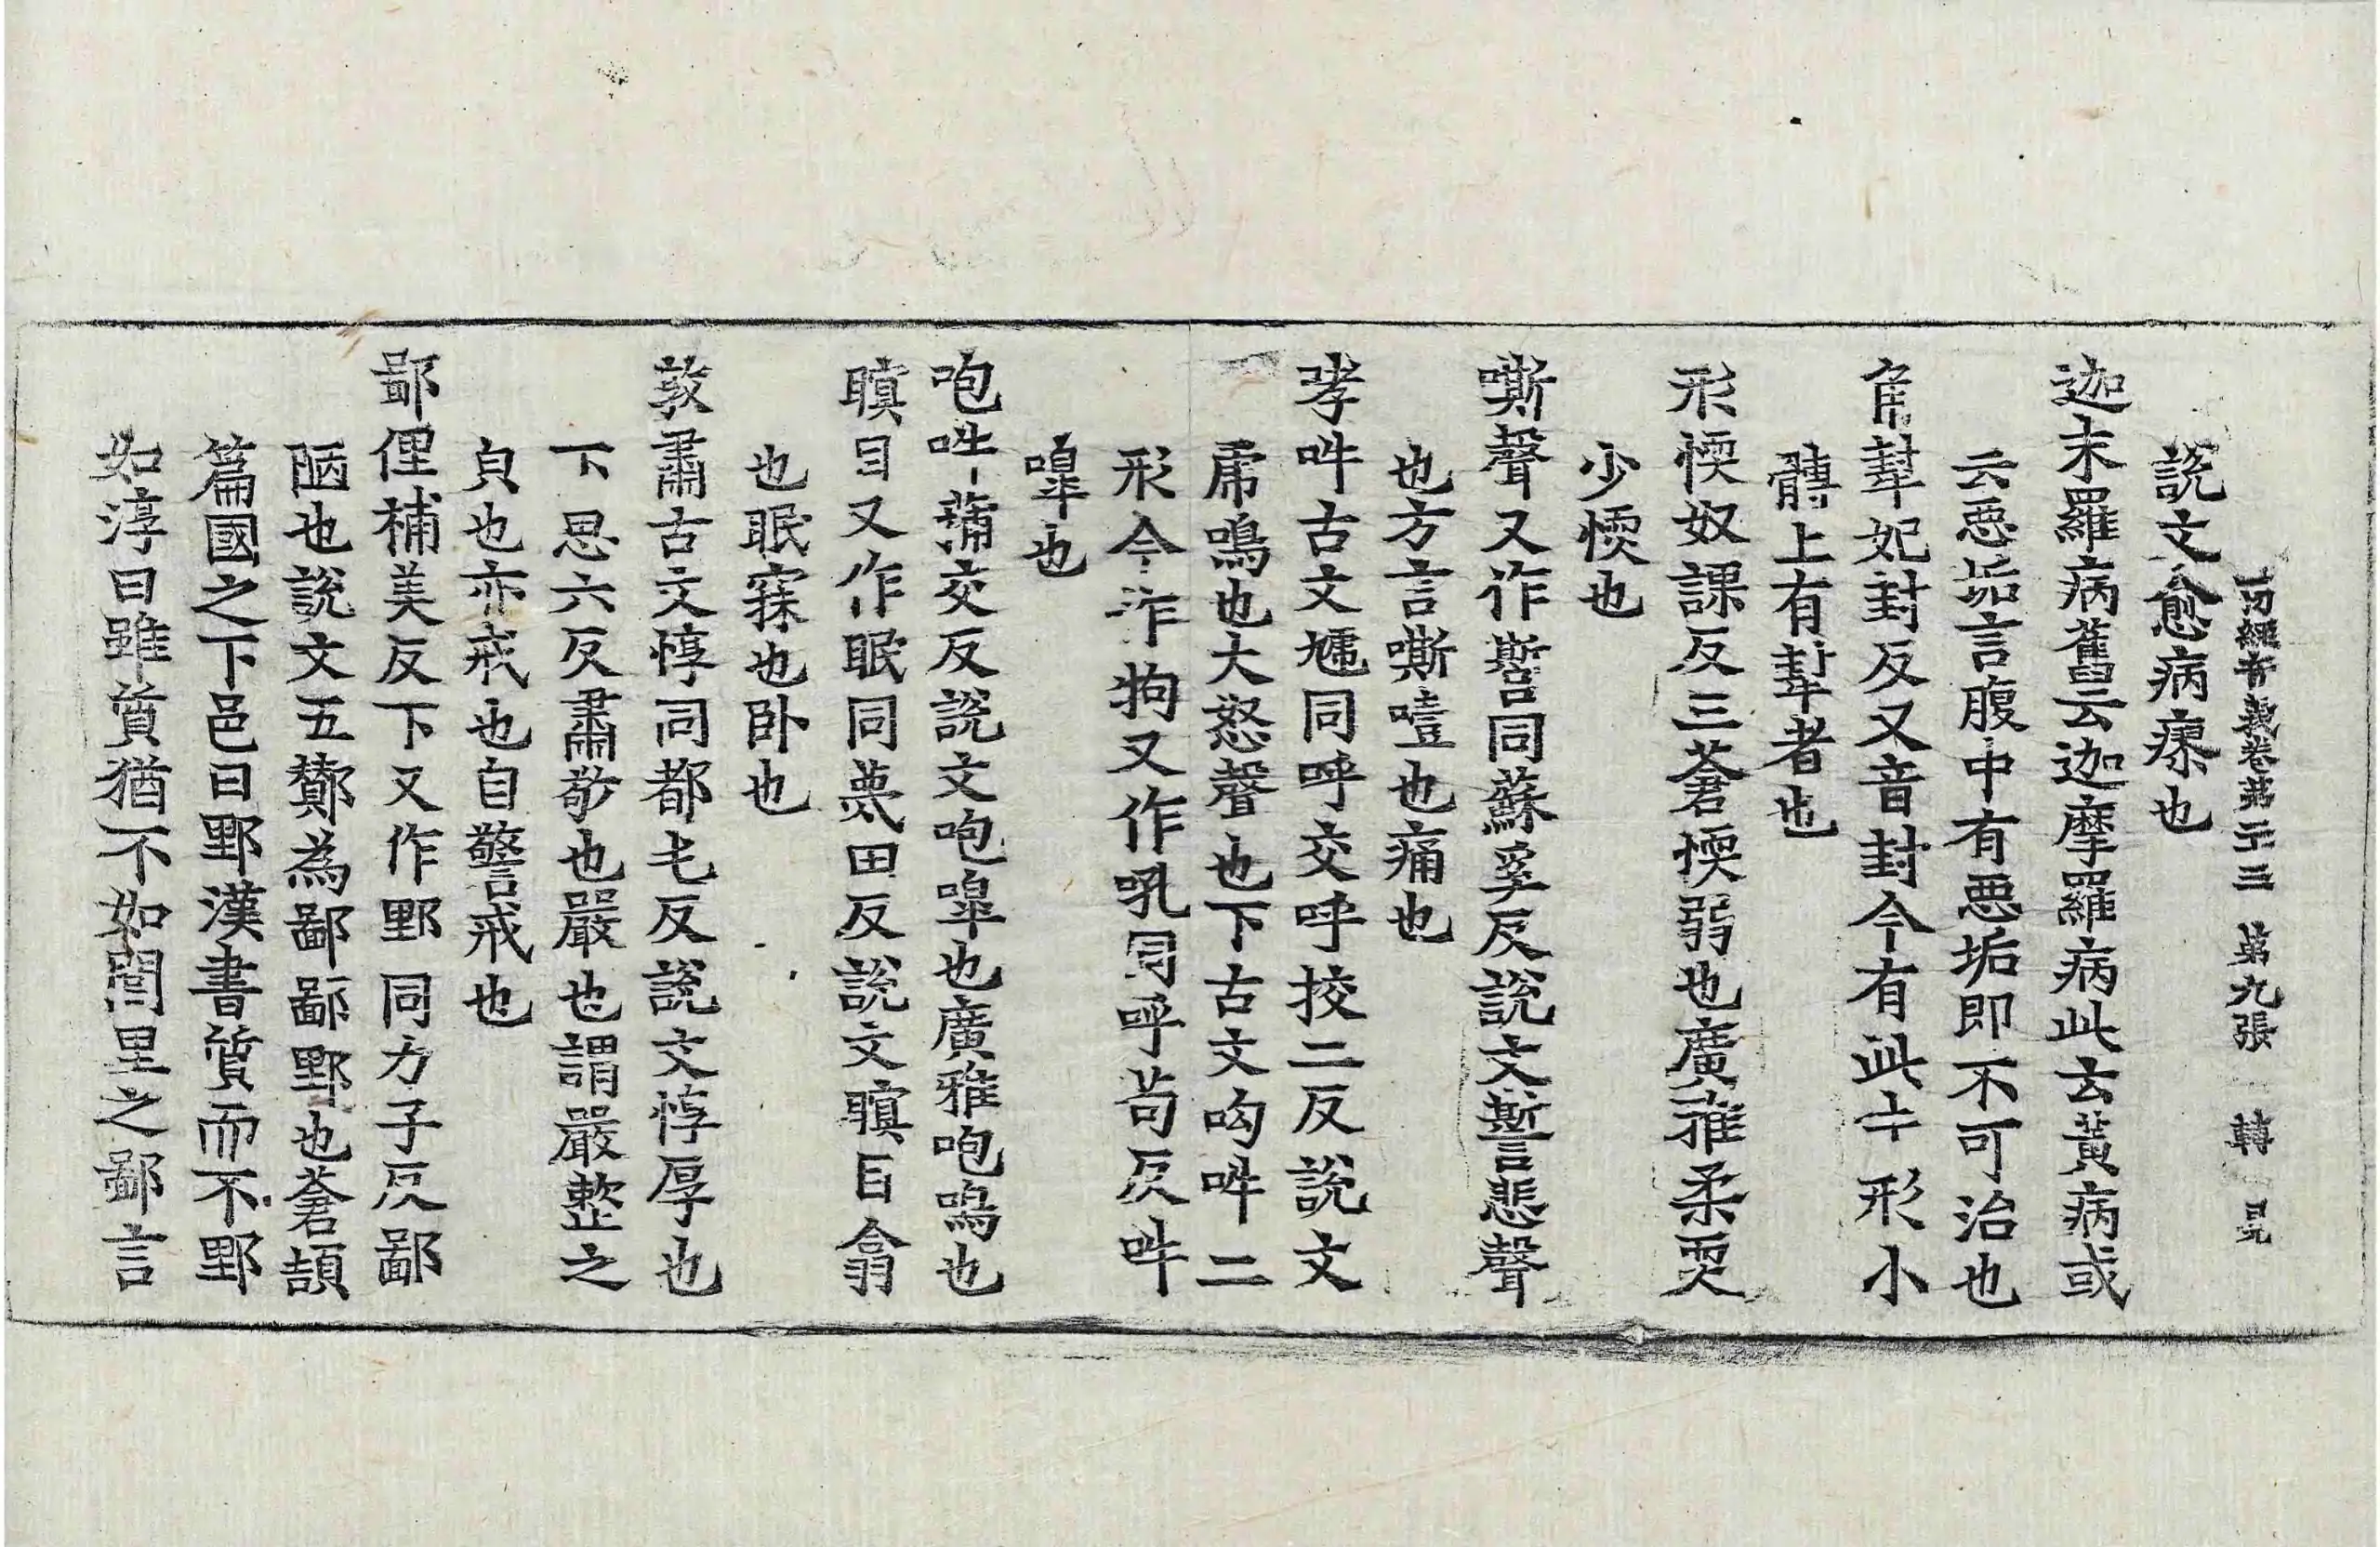 一切經音義卷第二十三 第九張 轉
說文愈病瘳也
迦末羅病舊云迦摩羅病此云黃病或
云惡垢言腹中有惡垢即不可治也
犎妃封反又音封今有此牛形小
髆上有犎者也
形愞奴課反三蒼愞弱也廣雅柔耎
少愞也
嘶聲又作㽄同蘇奚反說文㽄悲聲
也方言嘶噎也痛也
哮吽古文虓同呼交呼挍二反說文
虎鳴也大怒聲也下古文呴吽二
形今作狗又作吼同呼苟反吽
嘷也
咆吽蒲交反說文咆嘷也廣雅咆鳴也
瞋目又作眠同莫田反說文瞑目翕
也眠寐也卧也
敦肅古文惇同都屯反說文惇厚也
下思六反肅敬也嚴也謂嚴整之
皃也亦戒也自警戒也
鄙俚補美反下又作野同力子反鄙
陋也說文五酇為鄙鄙野也蒼頡
篇國之下邑曰野漢書質而不野
如淳曰雖質猶不如閭里之鄙言